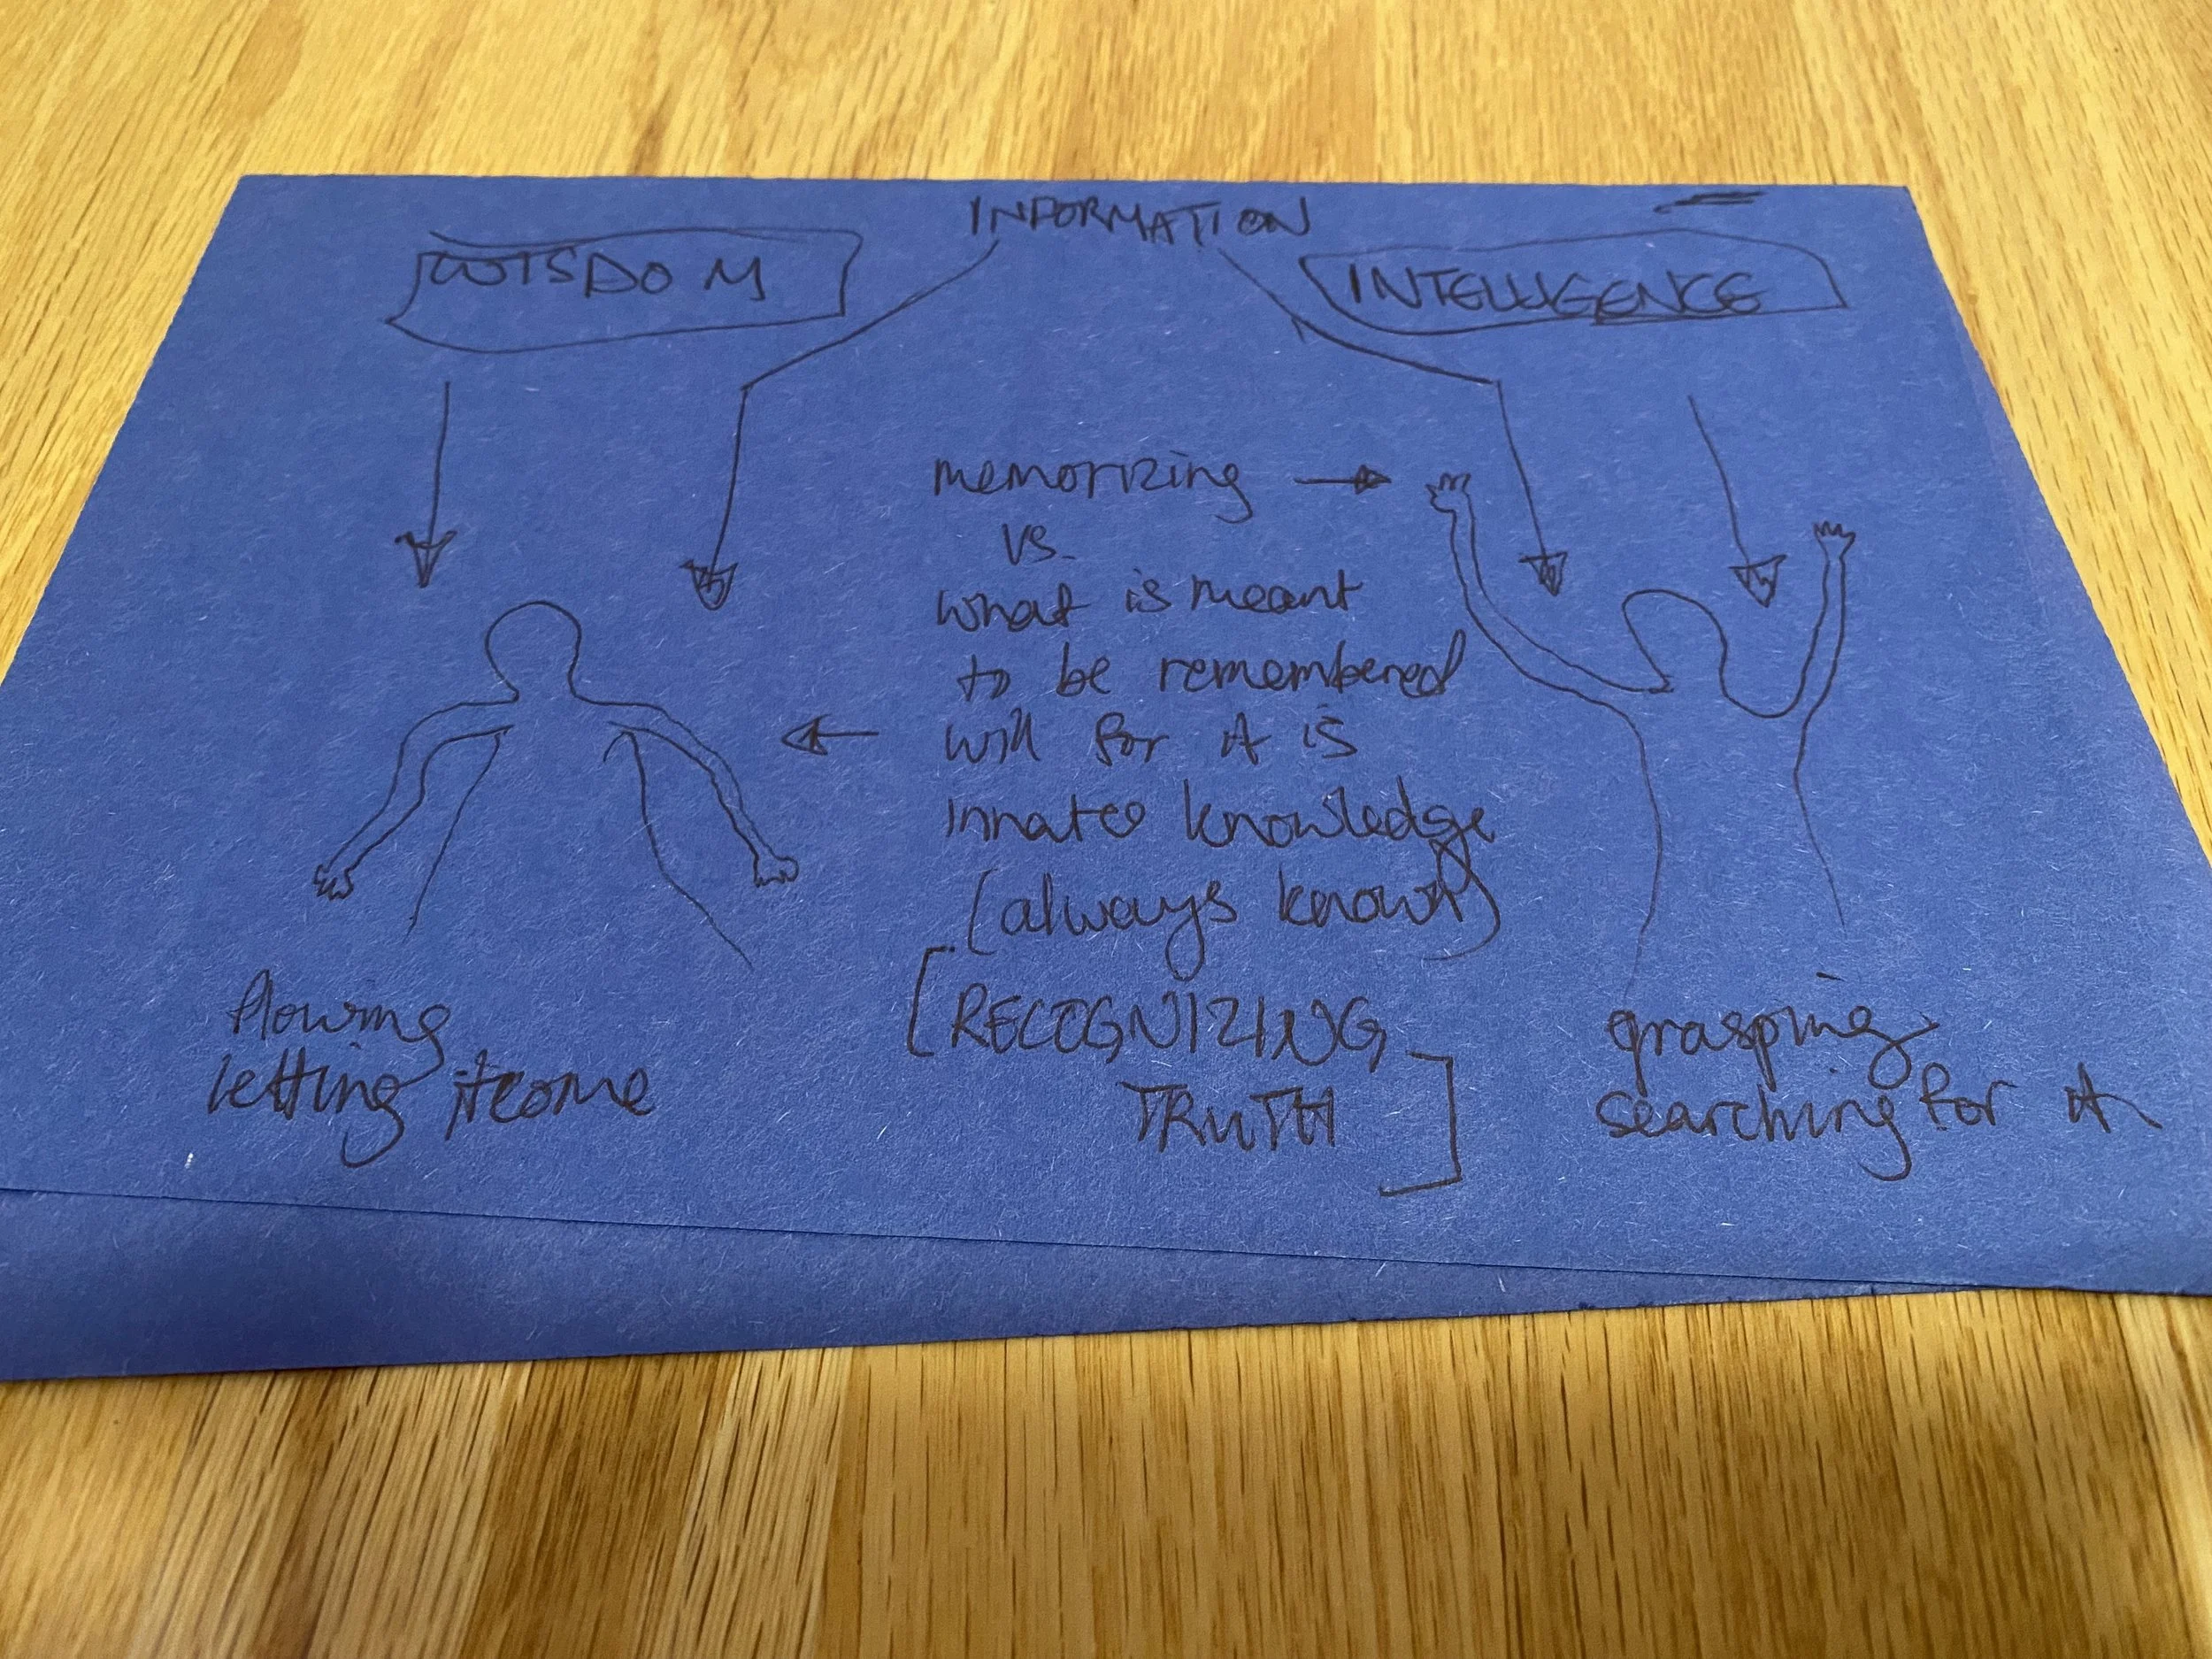 INFORMATION
WISDOM
INTELLIGENCE
memorizing
vs.
what is meant
to be remembered
will for it is
innate knowledge
(always known)
[RECOGNIZING
TRUTH]
flowing
letting it come
grasping
searching for it